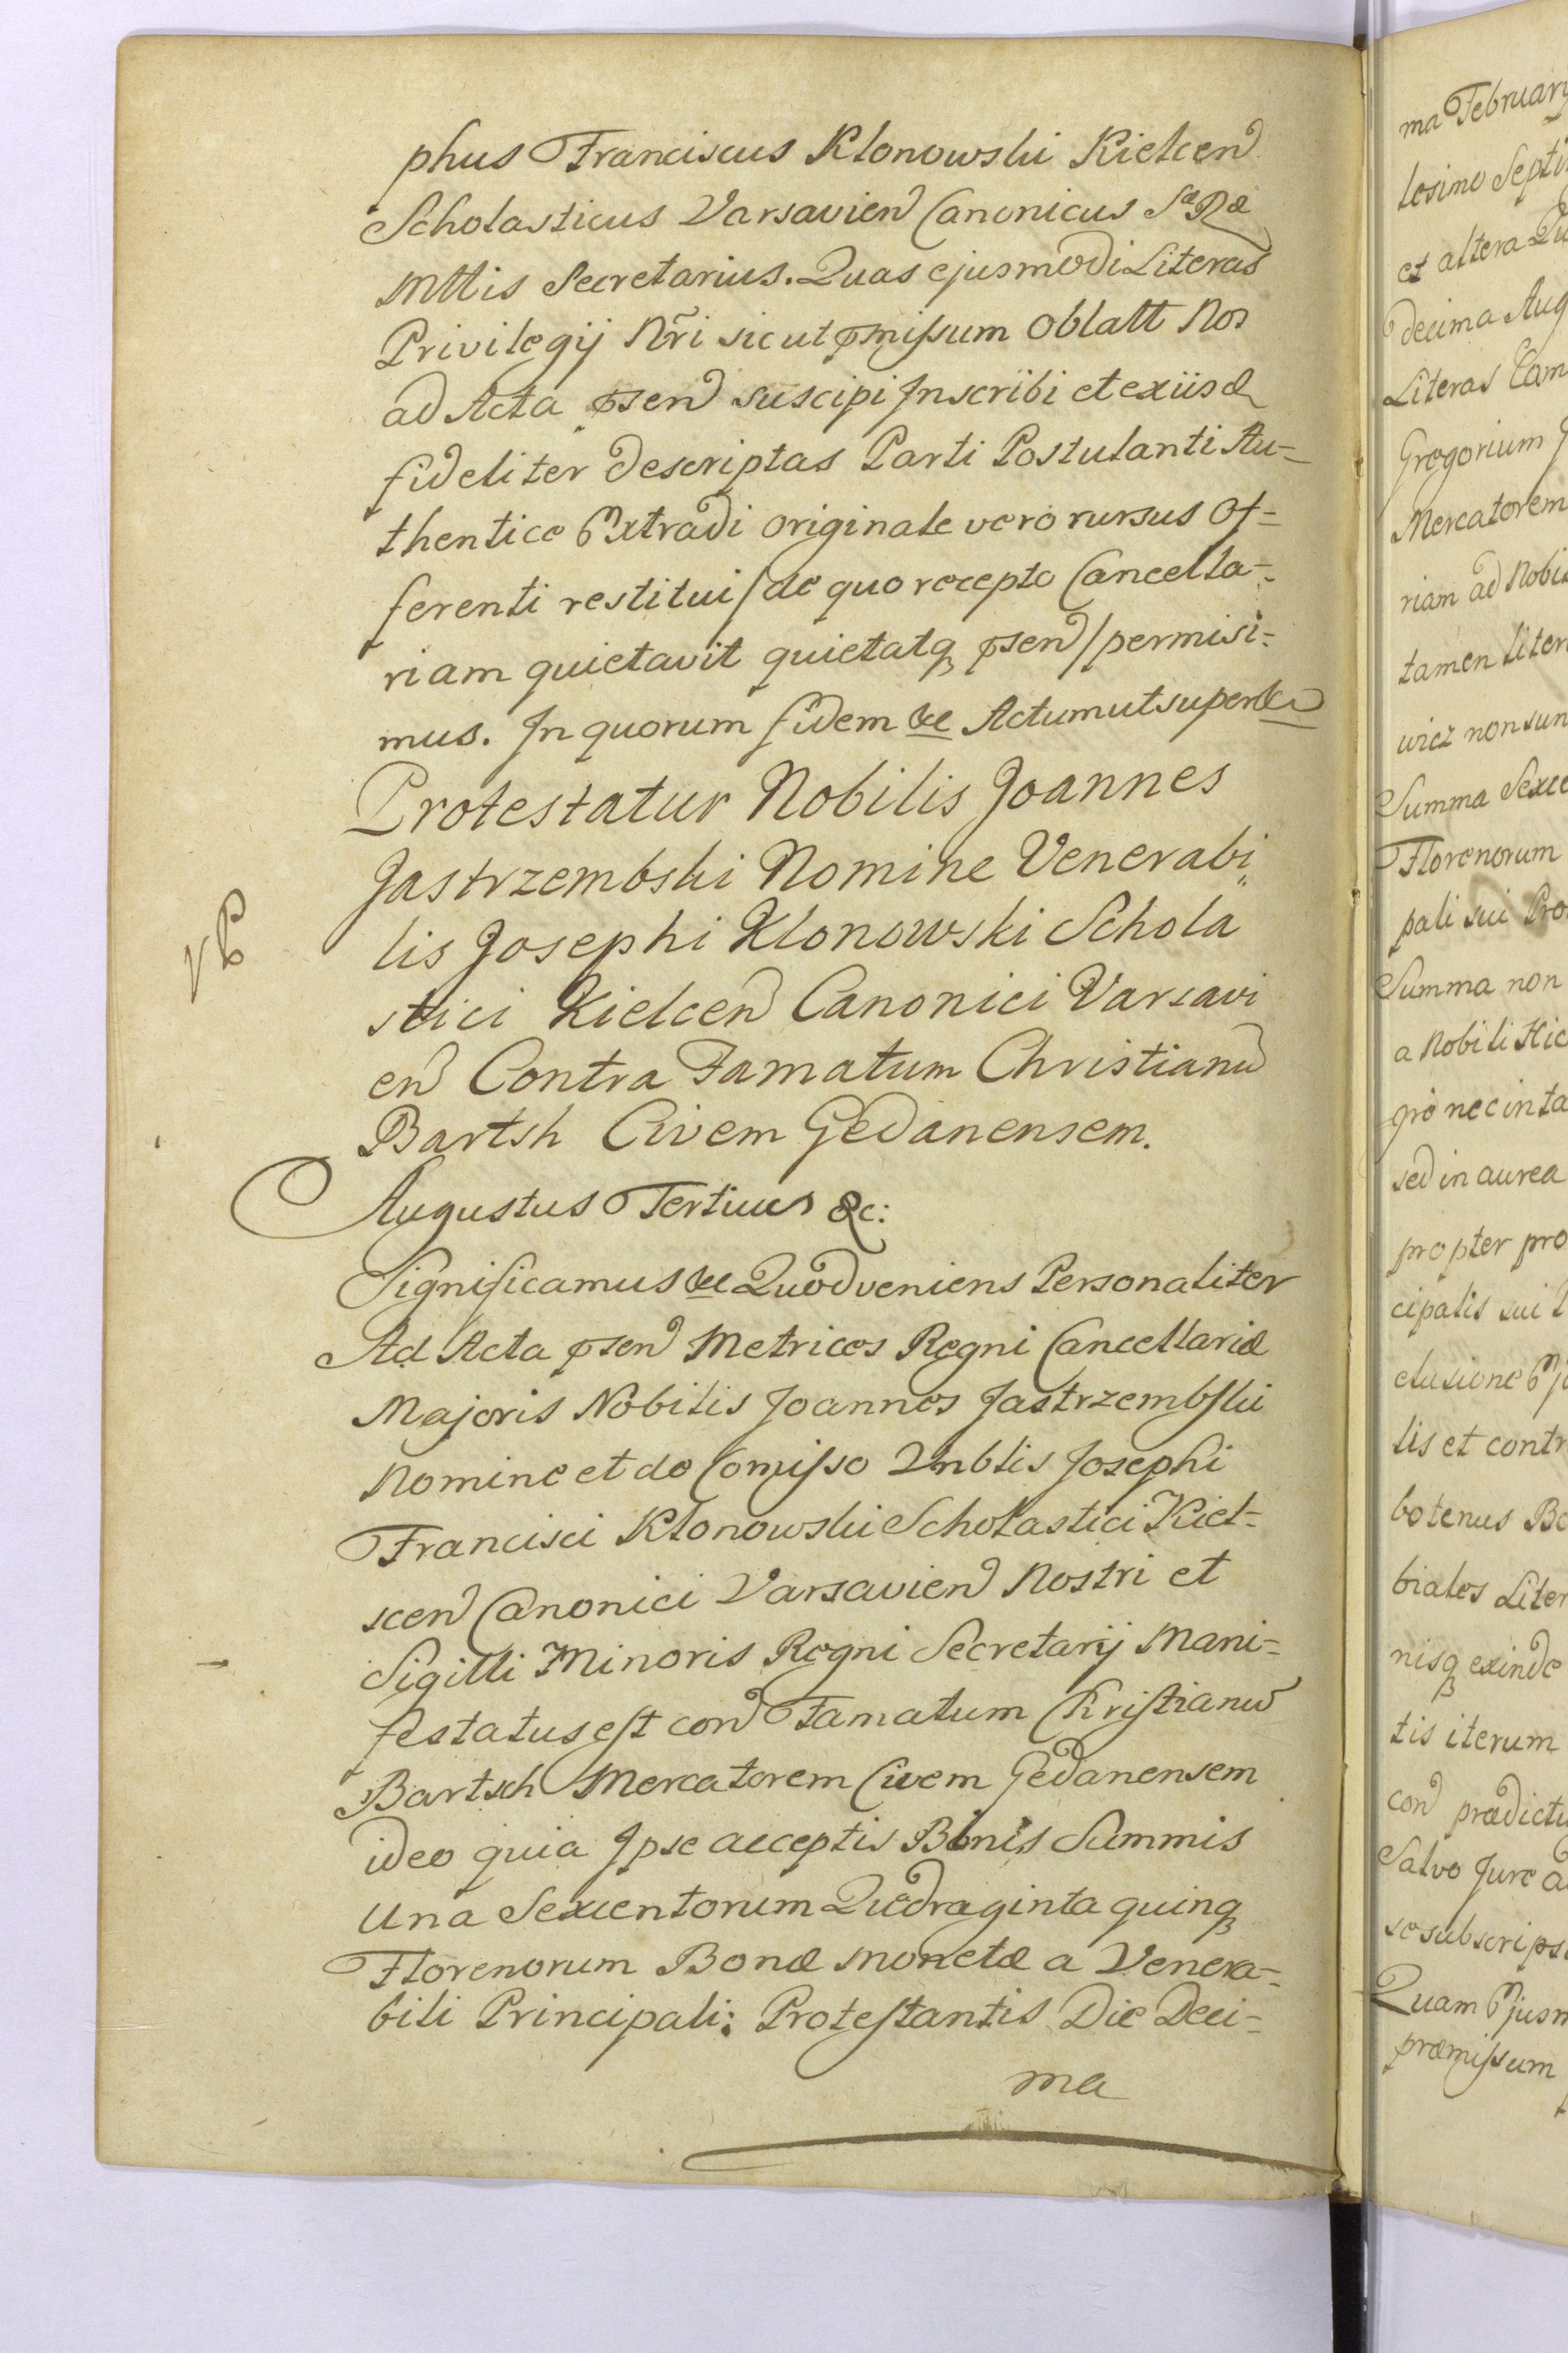 phus Franciscus Klonowski Kielcen
Scholasticus Varsavien Canonicus Sæ Ræ
Mttis Secretarius. Quas ejusmodi Literas
Privilegij Nri sicut pmissum Oblatt Nos
ad Acta psen suscipi Inscribi et ex iisd
fideliter descriptas Parti Postulanti Au-
thentice Extradi originale vero rursus Of-
ferenti restitui/de quo recepto Cancella-
riam quietavit quietatq psen/permisi-
mus. In quorum fidem &c Actum ut supra &c
Protestatur Nobilis Joannes
Jastrzembski Nomine Venerabi,,
lis Josephi Klonowski Schola
stici Kielcen Canonici Varsavi
en Contra Famatum Christianu
Bartsh Civem Gedanensem.
Augustus Tertius &c:
Significamus &c Quod veniens Personaliter
Ad Acta psen Metrices Regni Cancellariæ
Majoris Nobilis Joannes Jastrzembski
Nomine et de Comisso Vnblis Josephi
Francisci Klonowski Scholastici Kiel-
scen Canonici Varsavien Nostri et
Sigilli Minoris Regni Secretarij Mani-
festatus est con Famatum Christianu
Bartsch Mercatorem Civem Gedanensem
ideo quia Ipse acceptis Binis Summis
Una Sexcentorum Quadraginta quinq
Florenorum Bonæ Monetæ a Venera-
bili Principali: Protestantis Die Deci-
ma
ma Februarij
et altera
decima Aug
Literas Cam
Gregorium
Mercatorem
riam ad Nobi
tamen liter
wicz non sun
Summa Sexce
Florenorum
pali sui Pro
Summa non
a Nobili Hic
gro nec inta
sed in aurea
propter pro
cipalis sui
clusione
lis et contr
botenus
biales Liter
nisq exinde
tis iterum
con prædictu
Salvo Jure a
se subscrips
Quam Ejusm
præmissum